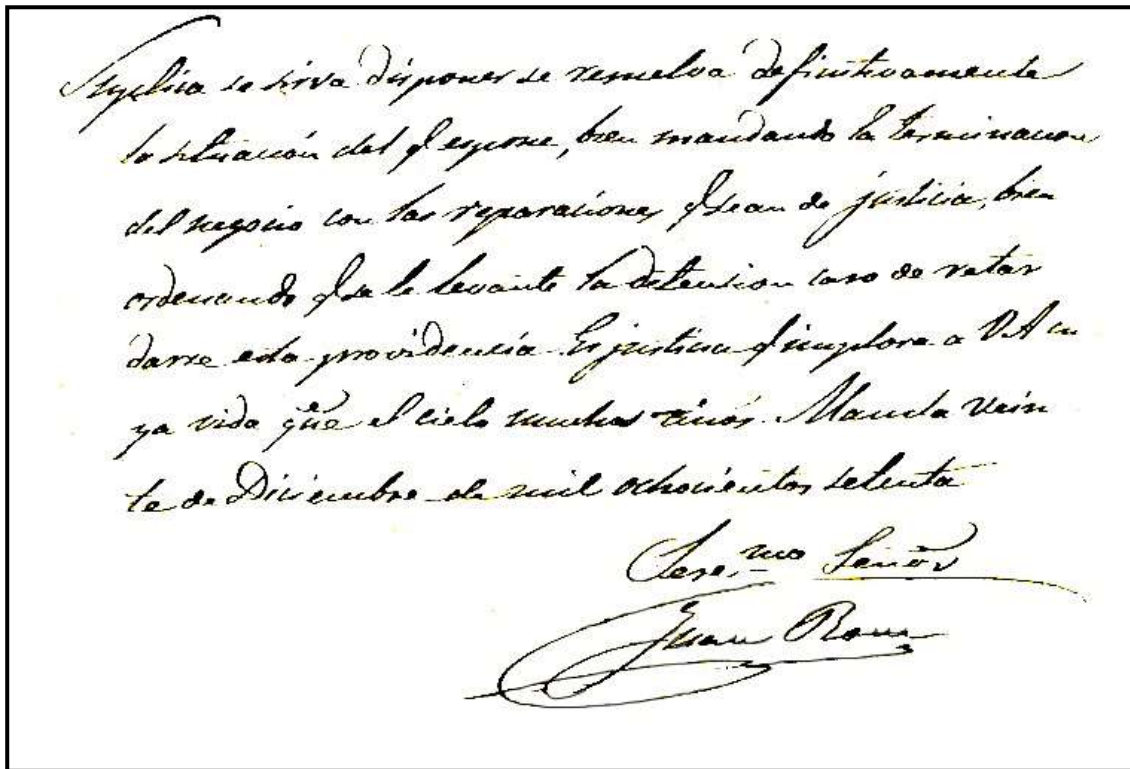 Suplica se sirva disponer se resuelva definitivamente
la situación del q̃ espone, bien mandando la terminacion
del negocio con las reparaciones q̃ sean de justicia, bien
ordenando q̃ se le levante la detension caso de retar
darse esta providencia. Es justicia q̃ implora a V.A cu
ya vida gũe el cielo muchos años. Manila Vein
te de Diciembre de mil ochocientos setenta
Sere.mo Señor
Juan Rom